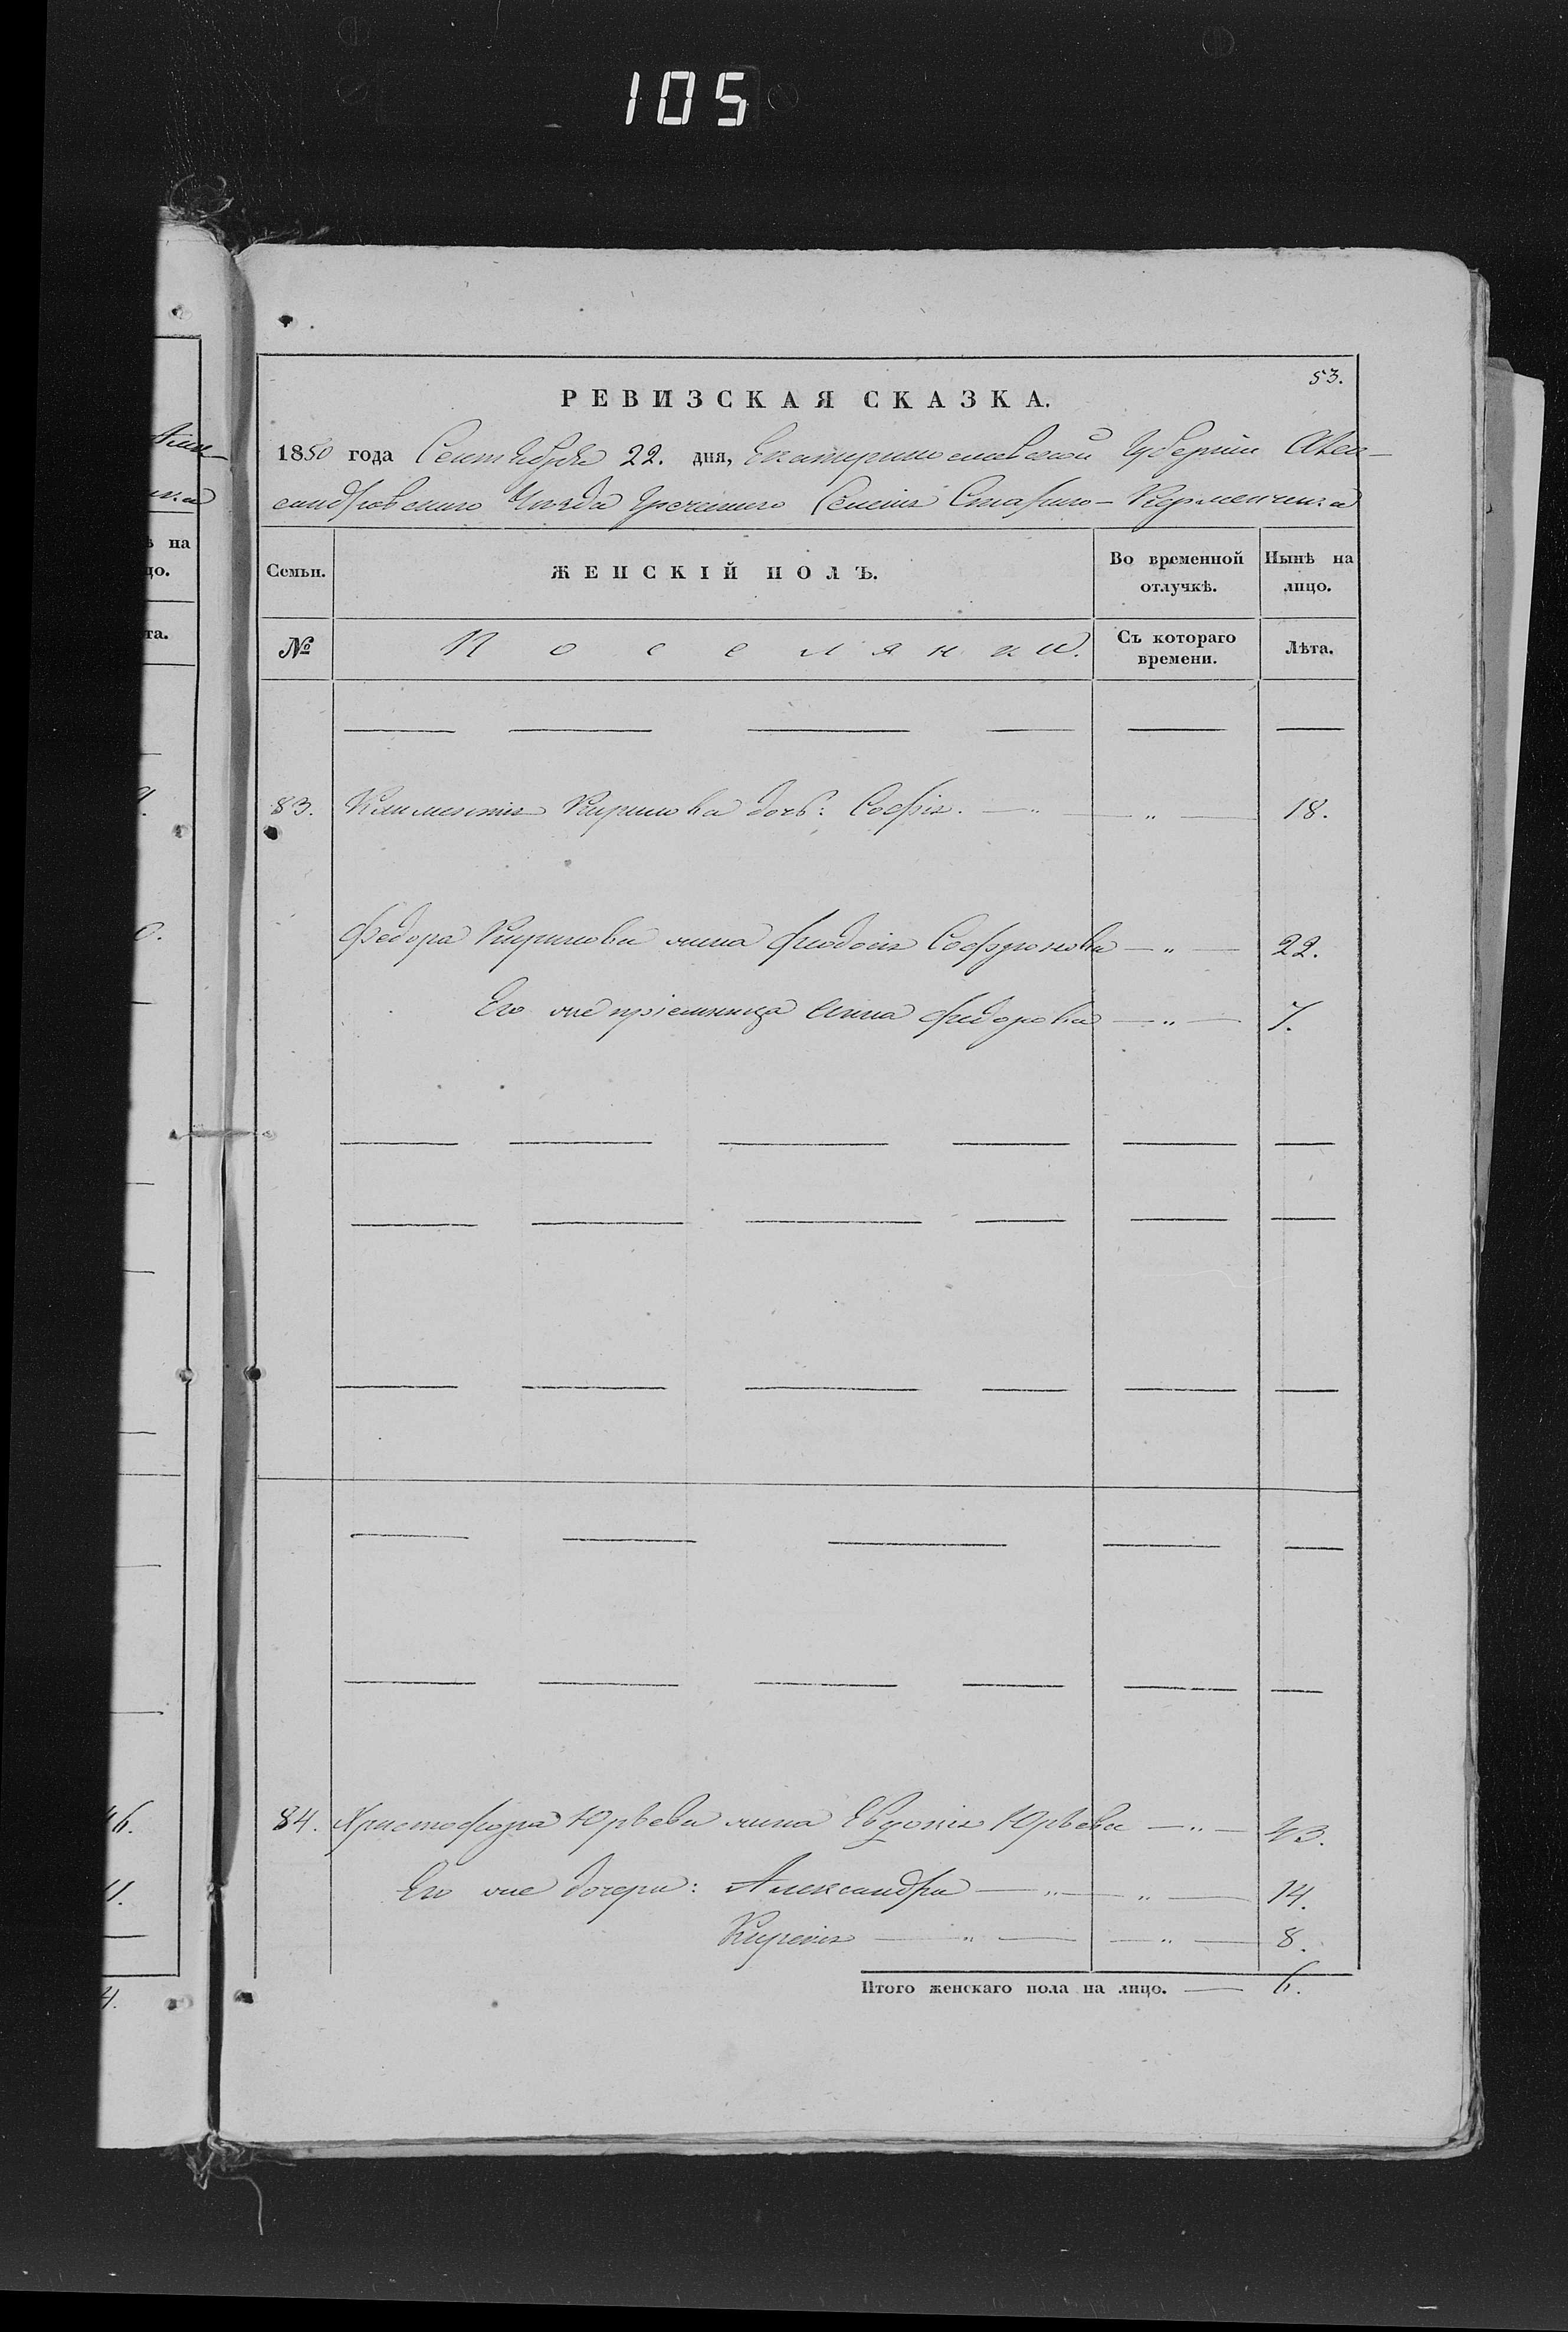 105
53.
РЕВИЗСКАЯ СКАЗКА.
1850 года Сентября 22. дня, Екатеринославской Губерніи Алек-
сандровскаго Уѣзда Греческаго Селенія Стараго-Керменчика
Семьи.
ЖЕНСКІЙ ПОЛЪ.
Во временной отлучкѣ.
Нынѣ на лицо.
№
Поселянки.
Съ котораго времени.
Лѣта.
83. Климентія Кирилова дочь: Софія. — „ — „ — 18.
Федора Кирилова жина Феодосія Софронова — „ — 22.
Его же пріемница Анна Федорова — „ — 7.
84. Христофора Юрьева жина Евдокія Юрьева — „ — 43.
Его же дочери: Александра — „ — „ — 14.
Кирекія — „ — „ — 8.
Итого женскаго пола на лицо. — 6.